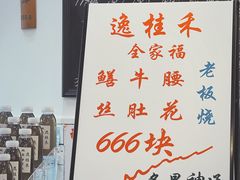 逸桂禾
全家福
鳝牛腰
丝肚花
老板烧
666块